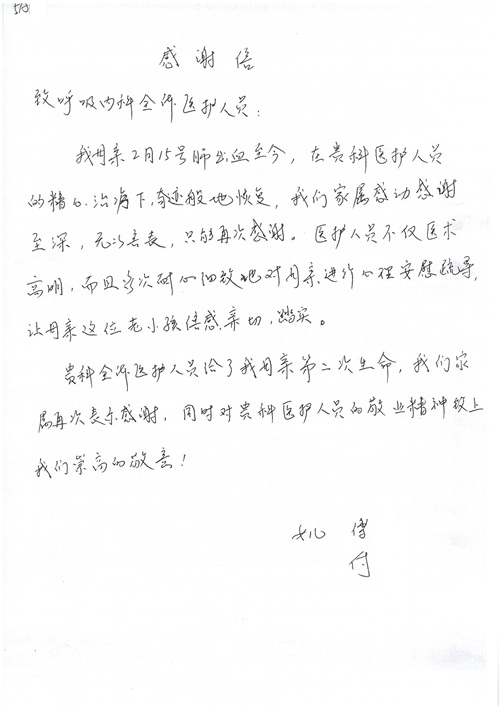 感谢信
致呼吸内科全体医护人员：
我母亲2月15号肺出血至今，在贵科医护人员
的精心治疗下，奇迹般地恢复，我们家属感动感谢
至深，无以言表，只能再次感谢。医护人员不仅医术
高明，而且多次耐心细致地对母亲进行心理安慰疏导，
让母亲这位老小孩倍感亲切，踏实。
贵科全体医护人员给了我母亲第二次生命，我们家
属再次表示感谢，同时对贵科医护人员的敬业精神致上
我们崇高的敬意！
女儿 傅
付